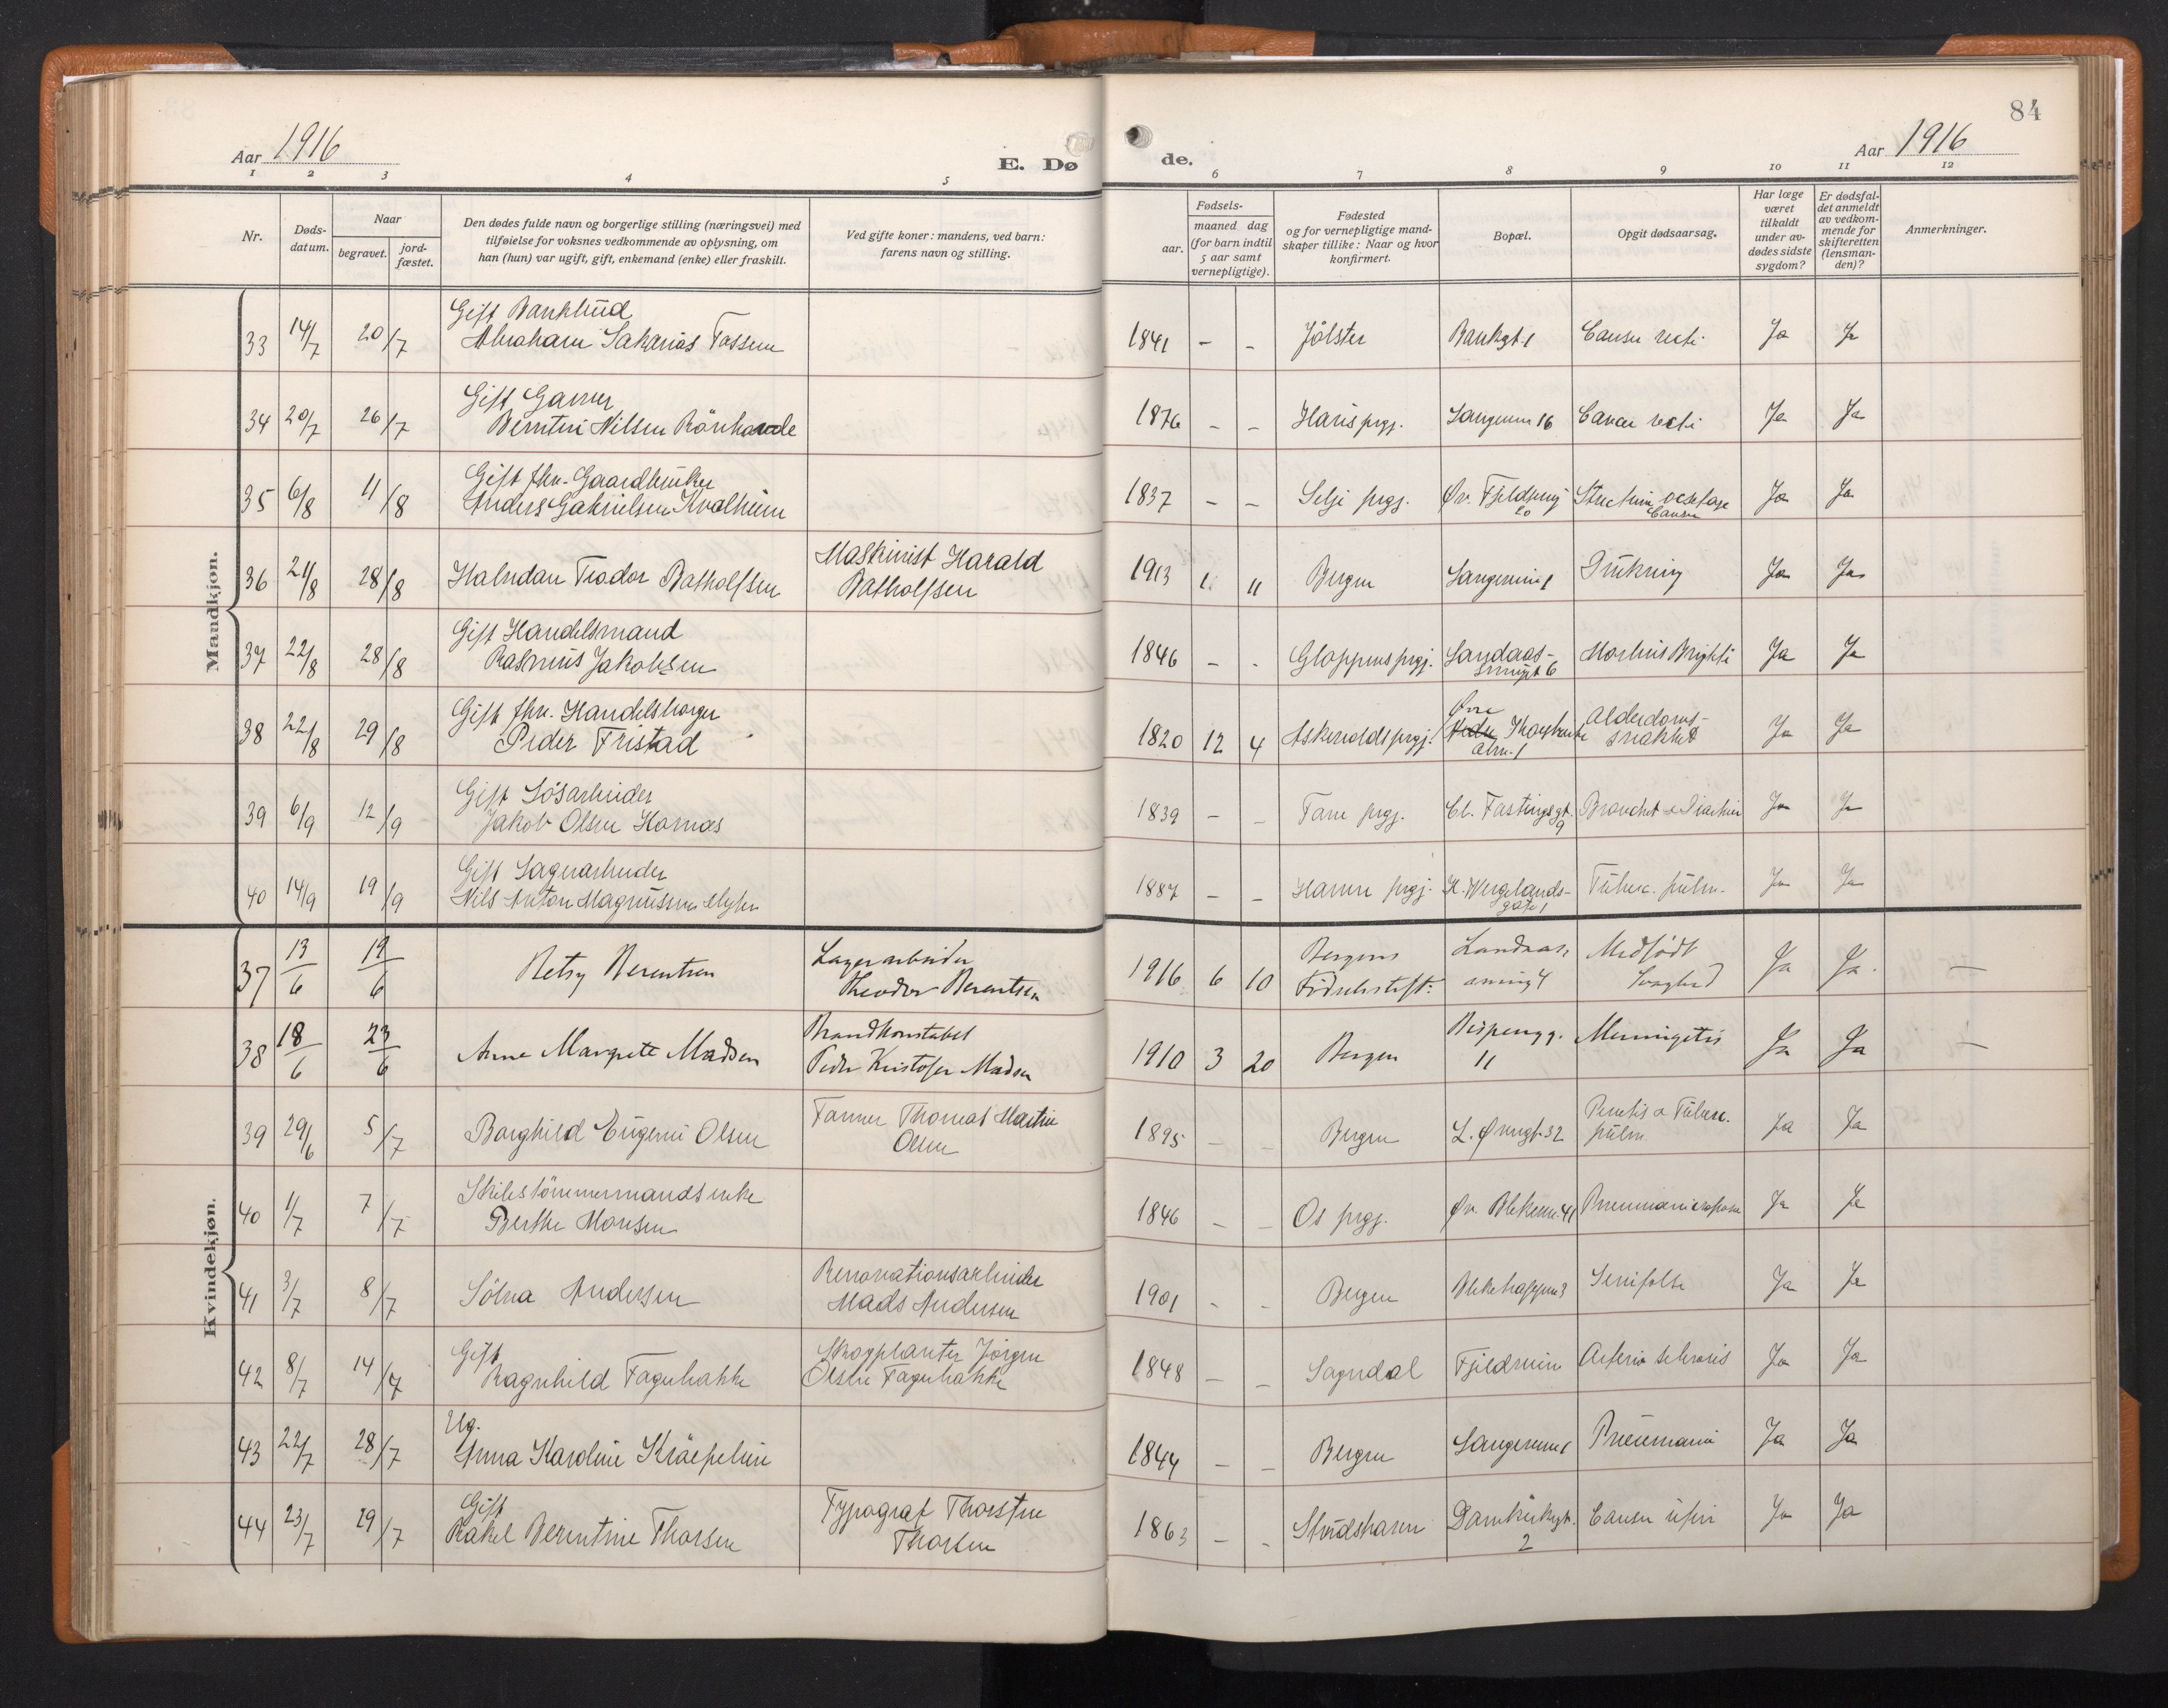 84
Aar 1916
E. Dø
de.
Aar 1916
1 2 3 4 5 6 7 8 9 10 11 12
Nr.
Døds-
datum.
Naar
begravet.
jord-
fæstet.
Den dødes fulde navn og borgerlige stilling (næringsvei) med
tilføielse for voksnes vedkommende av oplysning, om
han (hun) var ugift, gift, enkemand (enke) eller fraskilt.
Ved gifte koner: mandens, ved barn:
farens navn og stilling.
Fødsels-
aar.
maaned dag
(for barn indtil
5 aar samt
vernepligtige).
Fødested
og for vernepligtige mand-
skaper tillike: Naar og hvor
konfirmert.
Bopæl.
Opgit dødsaarsag.
Har læge
været
tilkaldt
under av-
dødes sidste
sygdom?
Er dødsfal-
det anmeldt
av vedkom-
mende for
skifteretten
(lensman-
den)?
Anmerkninger.
Mandkjøn.
Gift Bankbud
33 14/7 20/7 Abraham Sakarias Fossum 1841 – – Jølster Bankgt. 1 Cancer recti Ja Ja
Gift Garver
34 20/7 26/7 Berntin Nilsen 1876 – – Haus prgj. 16 Cancer recti Ja Ja
Gift fhv. Gaardbruker
35 6/8 11/8 Anders Gabrielsen Kvalheim 1837 – – Selje prgj. Øv. 20 Cancer Ja Ja
Maskinist Harald
36 21/8 28/8 Halvdan Teodor Batholfsen Batholfsen 1913 11 Bergen 1 Drukning Ja Ja
Gift Handelsmand
37 22/8 28/8 Rasmus Jakobsen 1846 – – Gloppens prgj. Landaas-
smuget 6 Morbus Brighti Ja Ja
Gift fhv. Handelsborger
38 22/8 29/8 Peder Fristad 1820 12 4 Askevolds prgj. Øvre
alm. 1 Alderdoms-
svakhet Ja Ja
Gift Løsarbeider
39 6/9 12/9 Jakob Olsen 1839 – – prgj. Cl. Fastingsgt.
9 Ja Ja
Gift Lagerarbeider
40 14/9 19/9 Nils Anton Magnussen 1887 – – Hamre prgj. H. Wergelands-
gate 1 Tuberc. pulm. Ja Ja
Kvindekjøn.
37 13/6 19/6 Betsy Berentsen Lagerarbeider
Theodor Berentsen 1916 6 10 Bergens
Fødselsstift. Landaas-
smug 4 Medfødt
Svaghed Ja Ja. —
38 18/6 23/6 Anne Margrete Madsen Brandkonstabel
Peder Kristofer Madsen 1910 3 20 Bergen Bispengg.
11 Meningitis Ja Ja —
39 29/6 5/7 Borghild Eugenie Olsen Farmer Thomas Martin
Olsen 1895 – – Bergen L. Øvregt. 32 Tuberc.
pulm. Ja Ja
Skibstömmermands enke
40 1/7 7/7 Berthe Monsen 1846 – – Os prgj. Øv. Blekevei 41 Ja Ja
41 3/7 8/7 Sölna Andersen Renovationsarbeider
Mads Andersen 1901 – – Bergen 3 Ja Ja
Gift
42 8/7 14/7 Ragnhild Fagerbakke Skogplanter Jørgen
Olsen Fagerbakke 1848 – – Sogndal Fjeldveien Arterio sclerosis Ja Ja
Ug.
43 22/7 28/7 Anna Karoline Kräepelin 1844 – – Bergen 1 Pneumoni Ja Ja
Gift
44 23/7 29/7 Rakel Berentine Thorsen Typograf Thorsten
Thorsen 1863 – – Strudshavn Domkirkegt.
2 Cancer uteri Ja Ja